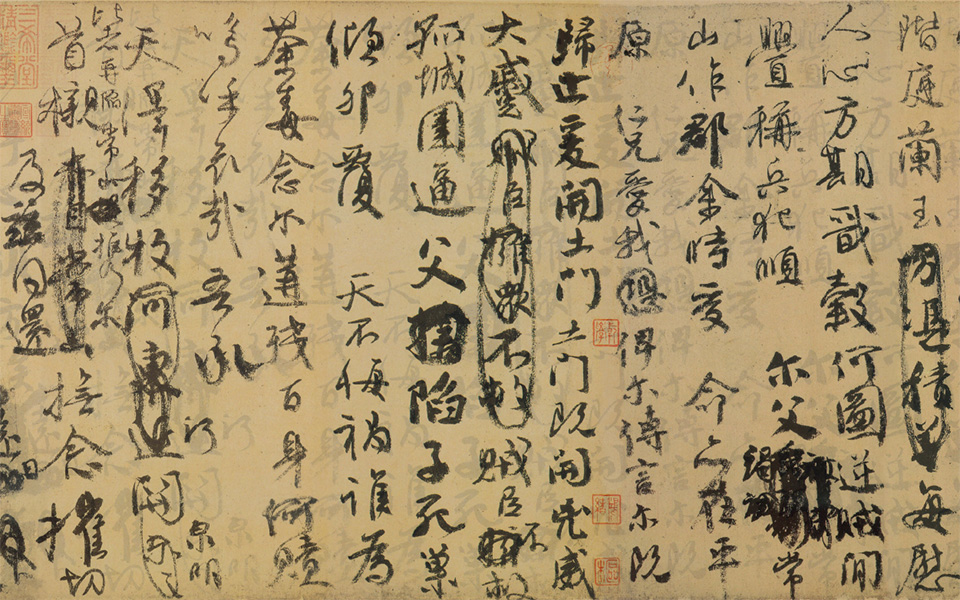 階庭蘭玉方憑積善每慰
人心方期戩穀何圖逆賊閒
釁稱兵犯順 爾父竭誠常
山作郡余時受 命亦在平
原 仁兄愛我恐俾爾傳言爾既
歸止爰開土門土門既開兇威
大蹙賊臣擁眾不救賊臣不擁救
孤城圍逼父擒陷子死巢
傾卵覆 天不悔禍誰為
荼毒念爾遘殘百身何贖
嗚呼哀哉吾承
天澤移牧河東近河關
泉明
比者再陷常山攜爾
首櫬亦自常山撫念摧切
及茲同還